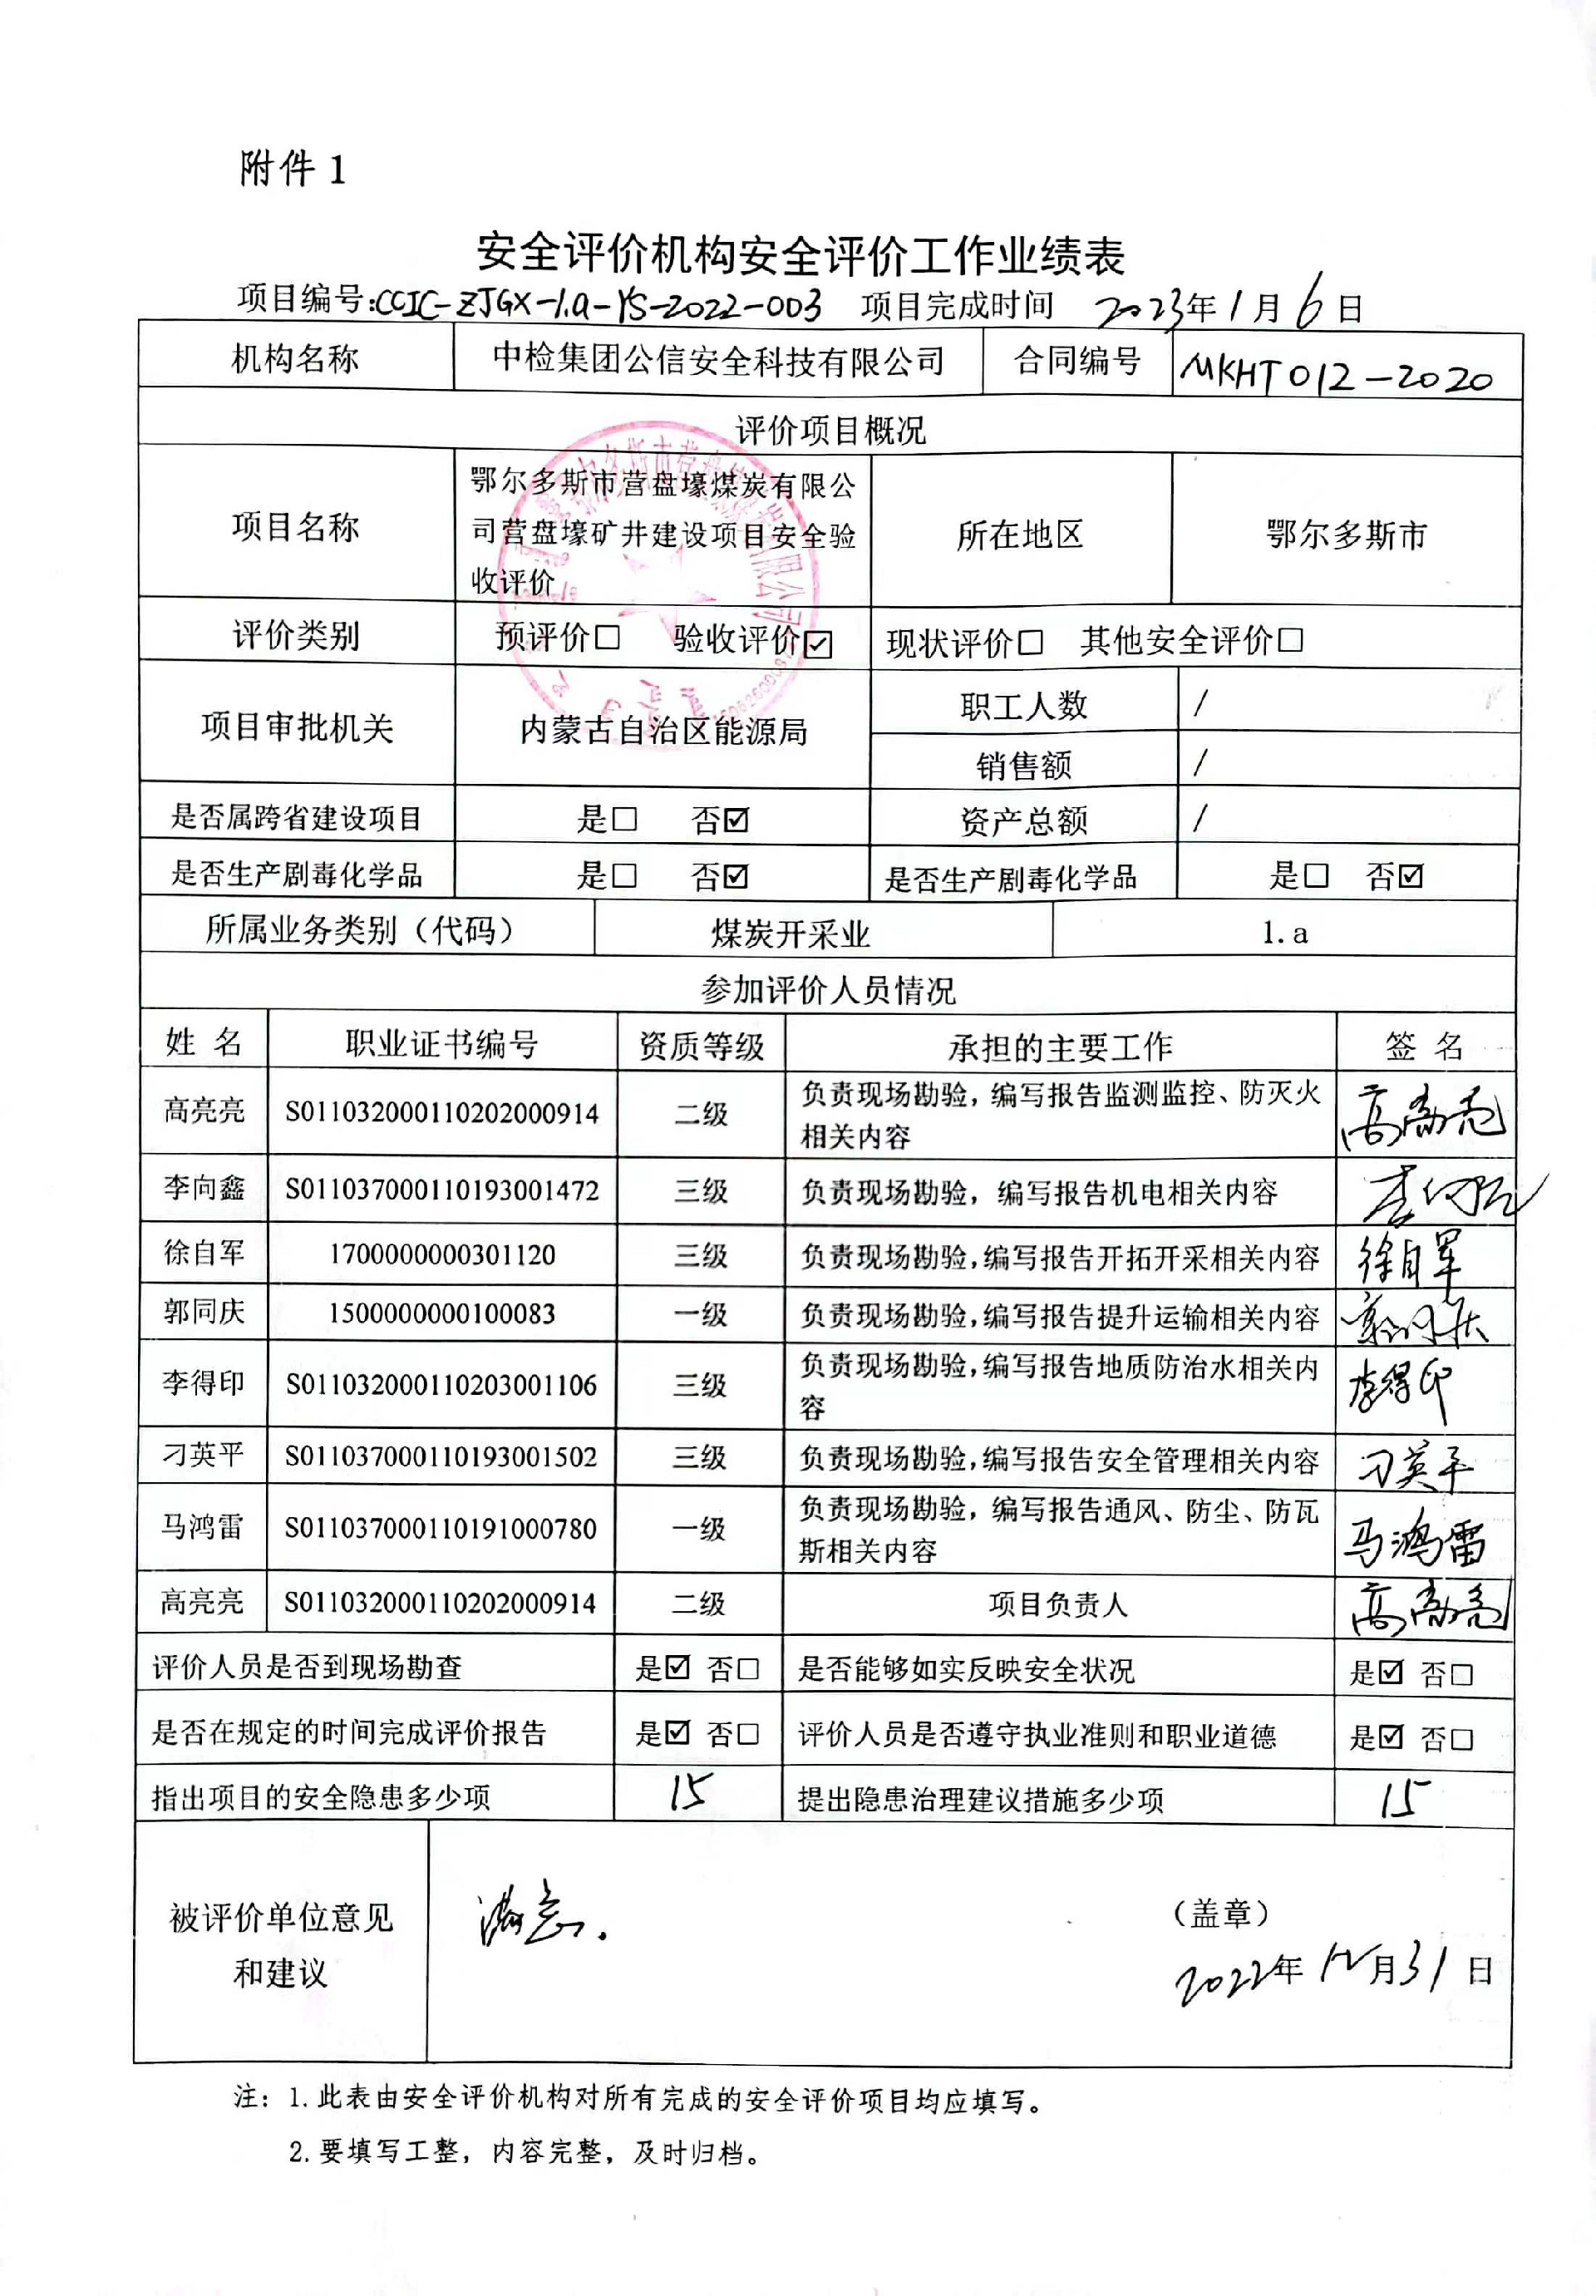 附件 1
安全评价机构安全评价工作业绩表
项目编号:CCIC-ZJGX-1.a-YS-2022-003 项目完成时间 2023年1月6日
机构名称 中检集团公信安全科技有限公司 合同编号 MKHT012-2020
评价项目概况
项目名称 鄂尔多斯市营盘壕煤炭有限公
司营盘壕矿井建设项目安全验
收评价 所在地区 鄂尔多斯市
评价类别 预评价□ 验收评价☑ 现状评价□ 其他安全评价□
项目审批机关 内蒙古自治区能源局 职工人数 /
销售额 /
是否属跨省建设项目 是□ 否☑ 资产总额 /
是否生产剧毒化学品 是□ 否☑ 是否生产剧毒化学品 是□ 否☑
所属业务类别（代码） 煤炭开采业 1.a
参加评价人员情况
姓 名 职业证书编号 资质等级 承担的主要工作 签 名
高亮亮 S011032000110202000914 二级 负责现场勘验，编写报告监测监控、防灭火
相关内容 高亮亮
李向鑫 S011037000110193001472 三级 负责现场勘验，编写报告机电相关内容
徐自军 1700000000301120 三级 负责现场勘验,编写报告开拓开采相关内容 徐自军
郭同庆 1500000000100083 一级 负责现场勘验,编写报告提升运输相关内容 郭同庆
李得印 S011032000110203001106 三级 负责现场勘验,编写报告地质防治水相关内
容 李得印
刁英平 S011037000110193001502 三级 负责现场勘验,编写报告安全管理相关内容 刁英平
马鸿雷 S011037000110191000780 一级 负责现场勘验，编写报告通风、防尘、防瓦
斯相关内容 马鸿雷
高亮亮 S011032000110202000914 二级 项目负责人 高亮亮
评价人员是否到现场勘查 是☑ 否□ 是否能够如实反映安全状况 是☑ 否□
是否在规定的时间完成评价报告 是☑ 否□ 评价人员是否遵守执业准则和职业道德 是☑ 否□
指出项目的安全隐患多少项 15 提出隐患治理建议措施多少项 15
被评价单位意见
和建议 满意. （盖章）
2022年12月31日
注：1.此表由安全评价机构对所有完成的安全评价项目均应填写。
2.要填写工整，内容完整，及时归档。